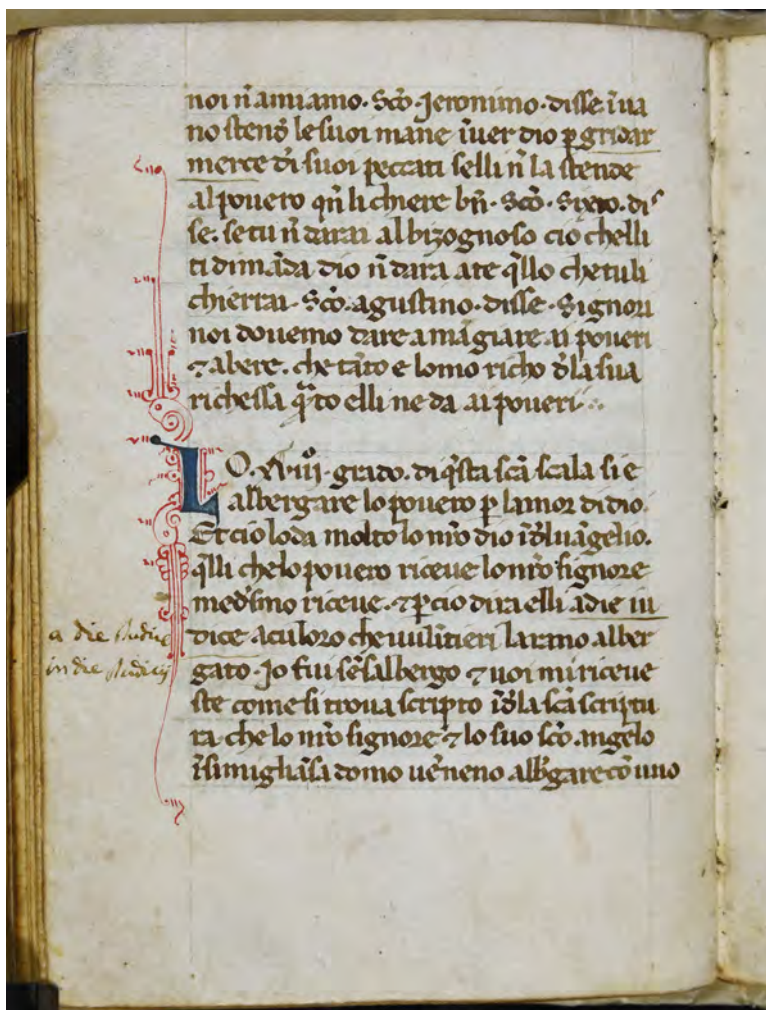 noi n̄ amiamo. Sc̄o. Jeronimo. disse ī ua
no stend̄ le suoi mane īuer dio p̱ gridar
merce di suoi peccati selli n̄ la stende
al pouero qn̄ li chiere bn̄. Sc̄o. Sixto. dis
se. se tu n̄ darai al bizognoso cio chelli
ti dimāda dio n̄ dara a te q̄llo che tu li
chierrai. Sc̄o. agustino. disse. Signori
noi douemo dare a māgiare. ai poueri
⁊ a bere. che tāto e lomo richo d̄la sua
richessa q̄to elli ne da .ai poueri.
LO. xviiiͦ. grado. di q̄sta sc̄a scala si e
albergare lo pouero p̱ lamor di dio.
Et cio loda molto lo nr̄o dio īd̄luāgelio.
q̄lli che lo pouero riceue lo nr̄o signore
med̄smo riceue. ⁊ p̱cio dira elli a die iu
dice a culoro che uulūtieri laranno alber
gato. Jo fui sēsalbergo ⁊ uoi mi riceue
ste come si troua scripto īd̄la sc̄a scriptu
ra che lo nr̄o signore ⁊ lo suo sc̄o. angelo
ī simigliāsa domo uēneno alb̄gare cō uno
a die Judice
in die Judicij